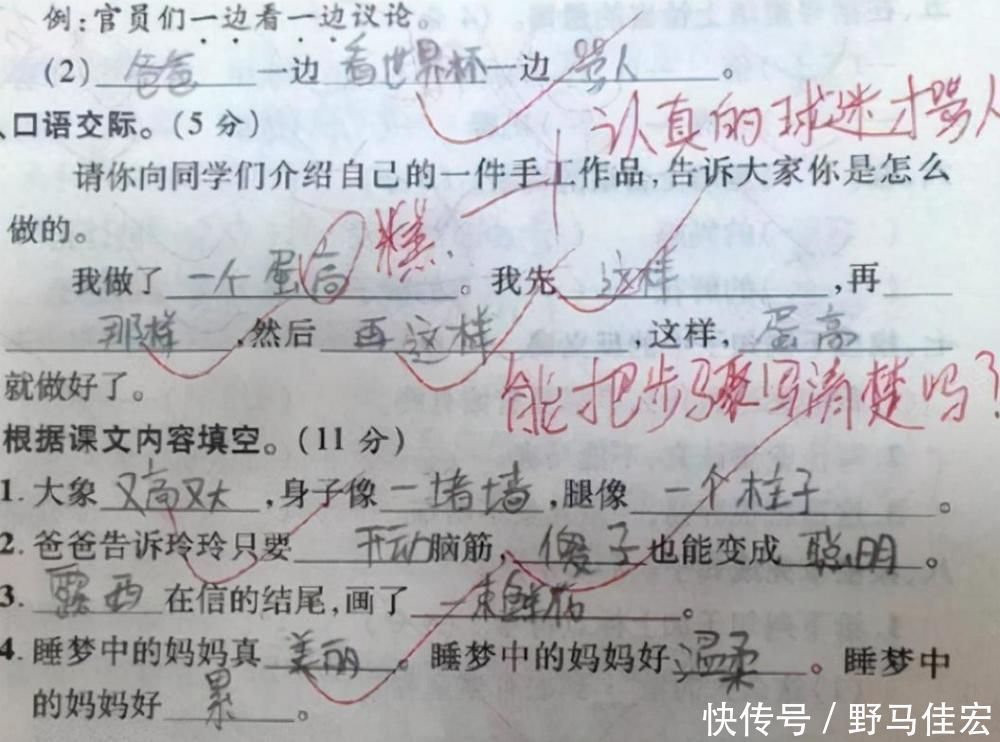 例:官员们一边看一边议论。
(2) 爸爸 一边 看世界杯 一边 骂人 。
认真的球迷才骂人
、口语交际。(5 分)
请你向同学们介绍自己的一件手工作品,告诉大家你是怎么
做的。
糕
我做了 一个蛋高 。我先 这样 ,再
那样 ,然后 再这样 ,这样, 蛋高
就做好了。
能把步骤写清楚吗?
根据课文内容填空。(11 分)
1. 大象 又高又大 ,身子像 一堵墙 ,腿像 一个柱子 。
2. 爸爸告诉玲玲只要 开动 脑筋, 傻子 也能变成 聪明 。
3. 露西 在信的结尾,画了 一束鲜花 。
4. 睡梦中的妈妈真 美丽 。睡梦中的妈妈好 温柔 。睡梦中
的妈妈好 累 。
快传号 / 野马佳宏